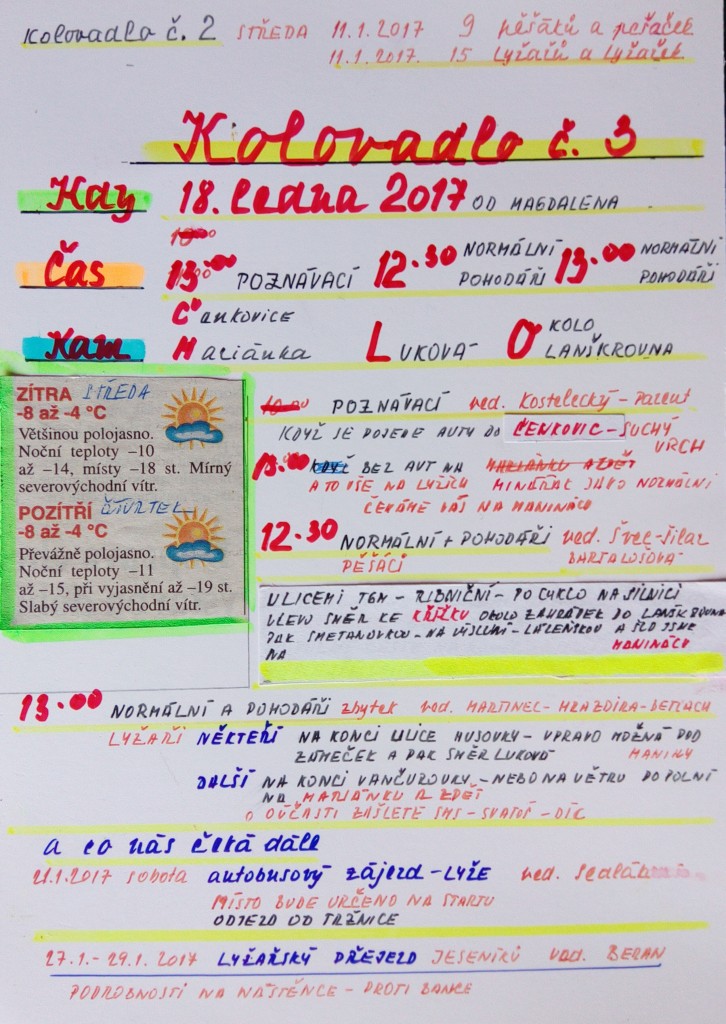 Kolovadlo č. 2 STŘEDA 11.1.2017 9 pěšáků a pešaček
11.1.2017. 15 Lyžařů a Lyžaček
Kolovadlo č. 3
Kdy 18. ledna 2017 OD MAGDALENA
Čas 13.00 POZNÁVACÍ 12.30 NORMÁLNÍ POHODÁŘI 13.00 NORMÁLNÍ POHODÁŘI
Kam Čenkovice Mariánka LUKOVÁ OKOLO LANŠKROUNA
ZÍTRA STŘEDA
-8 až -4 °C
Většinou polojasno.
Noční teploty –10
až –14, místy –18 st. Mírný
severovýchodní vítr.
POZÍTŘÍ ČTVRTEK
-8 až -4 °C
Převážně polojasno.
Noční teploty –11
až –15, při vyjasnění až –19 st.
Slabý severovýchodní vítr.
POZNÁVACÍ ved. Kostelecký - Pacent
KDYŽ SE POJEDE AUTY DO ČENKOVIC - SUCHÝ
VRCH
13.00 BEZ AUT NA
A TO VŠE NA LYŽÍCH MINAŘÁK JAKO NORMÁLNÍ
ČEKÁME VÁS NA MANINÁCH
12.30 NORMÁLNÍ + POHODÁŘI ved. Švec - Šilar
PĚŠÁCI BARTALOŠOVÁ
ULICEMI TGM - RIBNIČNÍ - PO CYKLO NA SILNICI
VLEVO SMĚR KE KŘÍŽKU OKOLO ZAHRÁDEK DO
PAK SMETANOVKOU - NA VÝSLUNÍ - A
NA MANINÁCH
13.00 NORMÁLNÍ A POHODÁŘI zbytek ved. MARTINEC - MRAZDIRA - BETLACH
LYŽAŘI NĚKTEŘÍ NA KONCI ULICE HUSOVKY - VPRAVO MOŽNÁ POD
ZÁMEČEK A PAK SMĚR LUKOVÁ MANINY
DALŠÍ NA KONCI VANČUROVKY - NEBO NA VĚTRU DO POLNÍ
NA MARIÁNKU A ZPĚT
O ÚČASTI ZAŠLETE SMS - SVATOŠ - DÍK
a co nás čeká dále
21.1.2017 sobota autobusový zájezd - LYŽE ved. Sedlák
MÍSTO BUDE URČENO NA STARTU
ODJEZD OD TRŽNICE
27.1. - 29.1. 2017 LYŽAŘSKÝ PŘEJEZD JESENÍKŮ ved. BERAN
PODROBNOSTI NA NÁSTĚNCE - PROTI BANCE